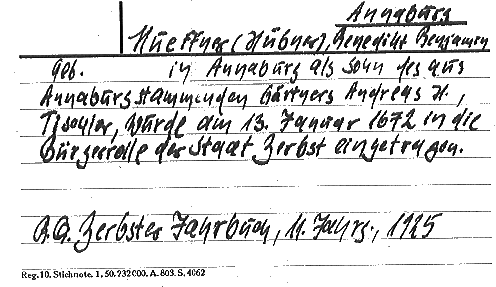 Annaburg
Hueffner (Hübner), Benedikt Benjamin
Geb. in Annaburg als Sohn des aus
Annaburg stammenden Gärtners Andreas H.,
Tischler, wurde am 13. Januar 1672 in die
Bürgerrolle der Stadt Zerbst eingetragen.
A.Q. Zerbster Jahrbuch, 11. Jahrg., 1925
Reg. 10. Stichnote. 1, 50. 732000. A. 803. S. 4062